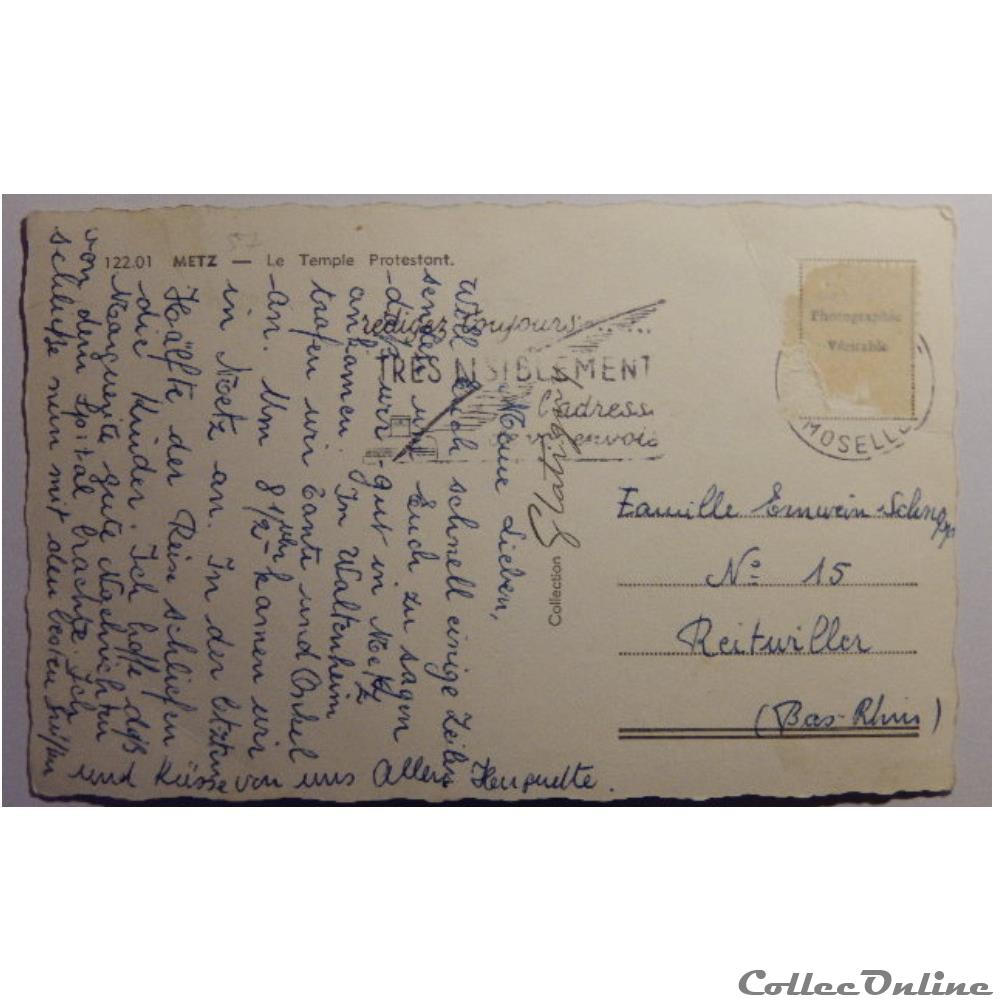 122.01 METZ — Le Temple Protestant.
57
Meine Lieben,
Will Euch schnell einige Zeilen
senden um Euch zu sagen
daß wir gut in Metz
ankamen. In Waltenheim
trafen wir Tante und Onkel
an. Um 8 1/2 Uhr kamen wir
in Metz an. In der letzten
Hälfte der Reise schliefen
die Kinder. Ich hoffe daß
Marguerite gute Nachrichten
von dem Spital brachte. Ich
schließe nun mit den besten Grüßen
und Küsse von uns Allen Henriette.
rédigez toujours......
TRES LISIBLEMENT
l'adresse
envois
Collection
Photographie
Véritable
MOSELLE
Famille Ernwein-Schnepp
No: 15
Reitwiller
(Bas-Rhin)
CollecOnline